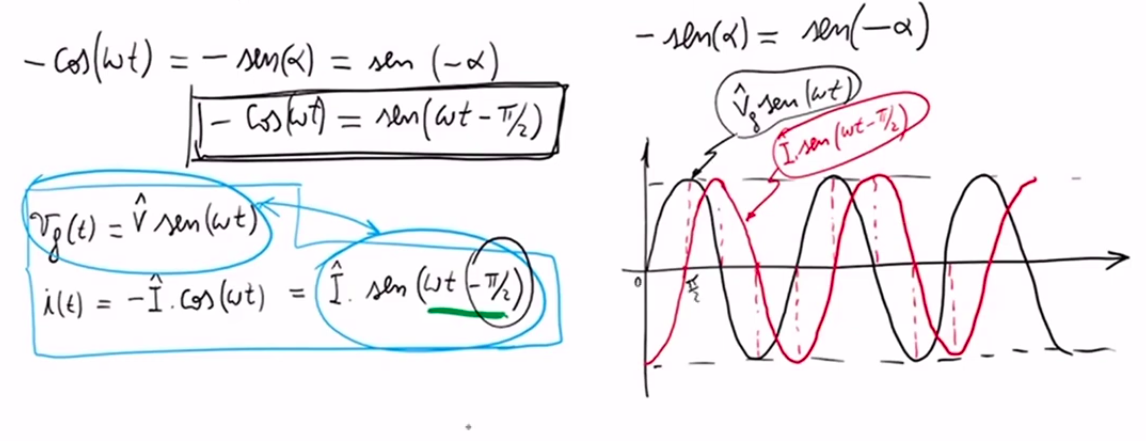 -cos(ωt) = -sen(α) = sen (-α)
- cos(ωt) = sen(ωt - π/2)
v_g(t) = V̂ sen(ωt)
i(t) = -Î.cos(ωt) = Î. sen(ωt - π/2)
-sen(α) = sen(-α)
V̂_g sen(ωt)
Î.sen(ωt-π/2)
0
π/2